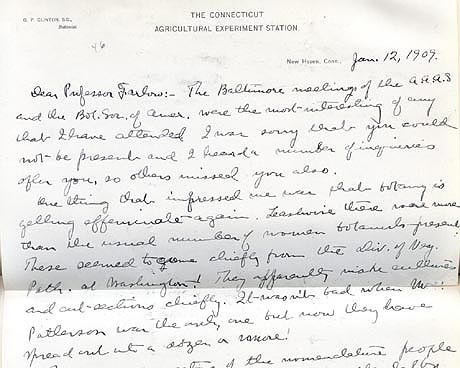 THE CONNECTICUT
G. P. CLINTON, S.D.,
Botanist
AGRICULTURAL EXPERIMENT STATION.
46
New Haven, Conn., Jan. 12, 1909.
Dear Professor Farlow:- The Baltimore meetings of the A.A.A.S
and the Bot. Soc. of Amer. were the most interesting of any
that I have attended. I was sorry that you could
not be present and I heard a number of inquiries
after you, so others missed you also.
One thing that impressed me was that botany is
getting effeminate again. Leastwise there were more
than the usual number of women botanists present.
These seemed to come chiefly from the Div. of Veg.
Path. at Washington! They apparently make cultures
and cut sections chiefly. It wasn't bad when Miss
Patterson was the only one but now they have
spread out into a dozen or more!
of the nomenclature people